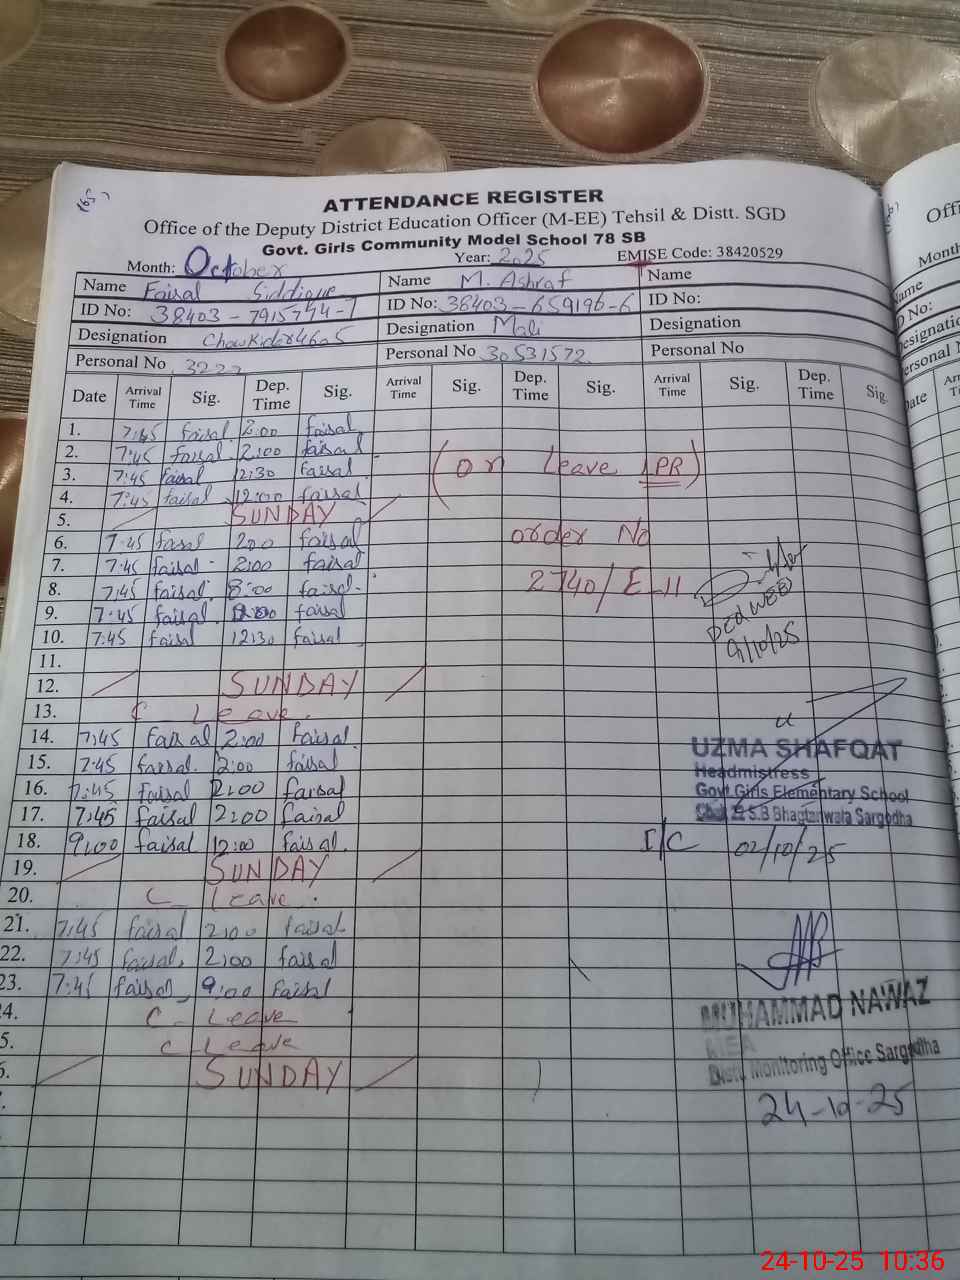 ATTENDANCE REGISTER
Office of the Deputy District Education Officer (M-EE) Tehsil & Distt. SGD
Govt. Girls Community Model School 78 SB
Month: October Year: 2025 EMISE Code: 38420529
Name Faisal Siddique Name M. Ashraf Name
ID No: 38403-7915744-7 ID No: 38403-659196-6 ID No:
Designation Chowkidar Designation Mali Designation
Personal No Personal No 30531572 Personal No
Date Arrival Time Sig. Dep. Time Sig. Arrival Time Sig. Dep. Time Sig. Arrival Time Sig. Dep. Time Sig.
1. 7:45 faisal 2:00 faisal
2. 7:45 faisal 2:00 faisal
3. 7:45 faisal 12:30 faisal (on Leave LPR)
4. 7:45 faisal 12:00 faisal
5. SUNDAY
6. 7:45 faisal 2:00 faisal order No
7. 7:45 faisal 2:00 faisal
8. 7:45 faisal 8:00 faisal 2740/E-11
9. 7:45 faisal faisal
10. 7:45 faisal 12:30 faisal
9/10/25
11.
12. SUNDAY
13. C Leave
14. 7:45 Faisal 2:00 Faisal
15. 7:45 faisal 2:00 faisal
UZMA SHAFQAT
Headmistress
16. 7:45 faisal 2:00 faisal
Govt Girls Elementary School
17. 7:45 faisal 2:00 faisal
S.B Bhagtanwala Sargodha
18. 9:00 faisal 12:00 faisal I/C 02/10/25
19. SUNDAY
20. C- Leave
21. 7:45 faisal 2:00 faisal
22. 7:45 faisal 2:00 faisal
23. 7:45 faisal 9:00 faisal
4. C- Leave
MUHAMMAD NAWAZ
MEA
5. C- Leave
Distt. Monitoring Office Sargodha
SUNDAY
24-10-25
24-10-25 10:36